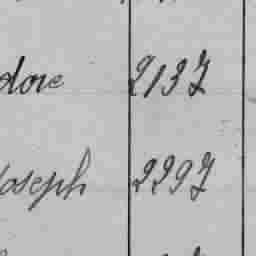 dore 2137
Joseph 2297